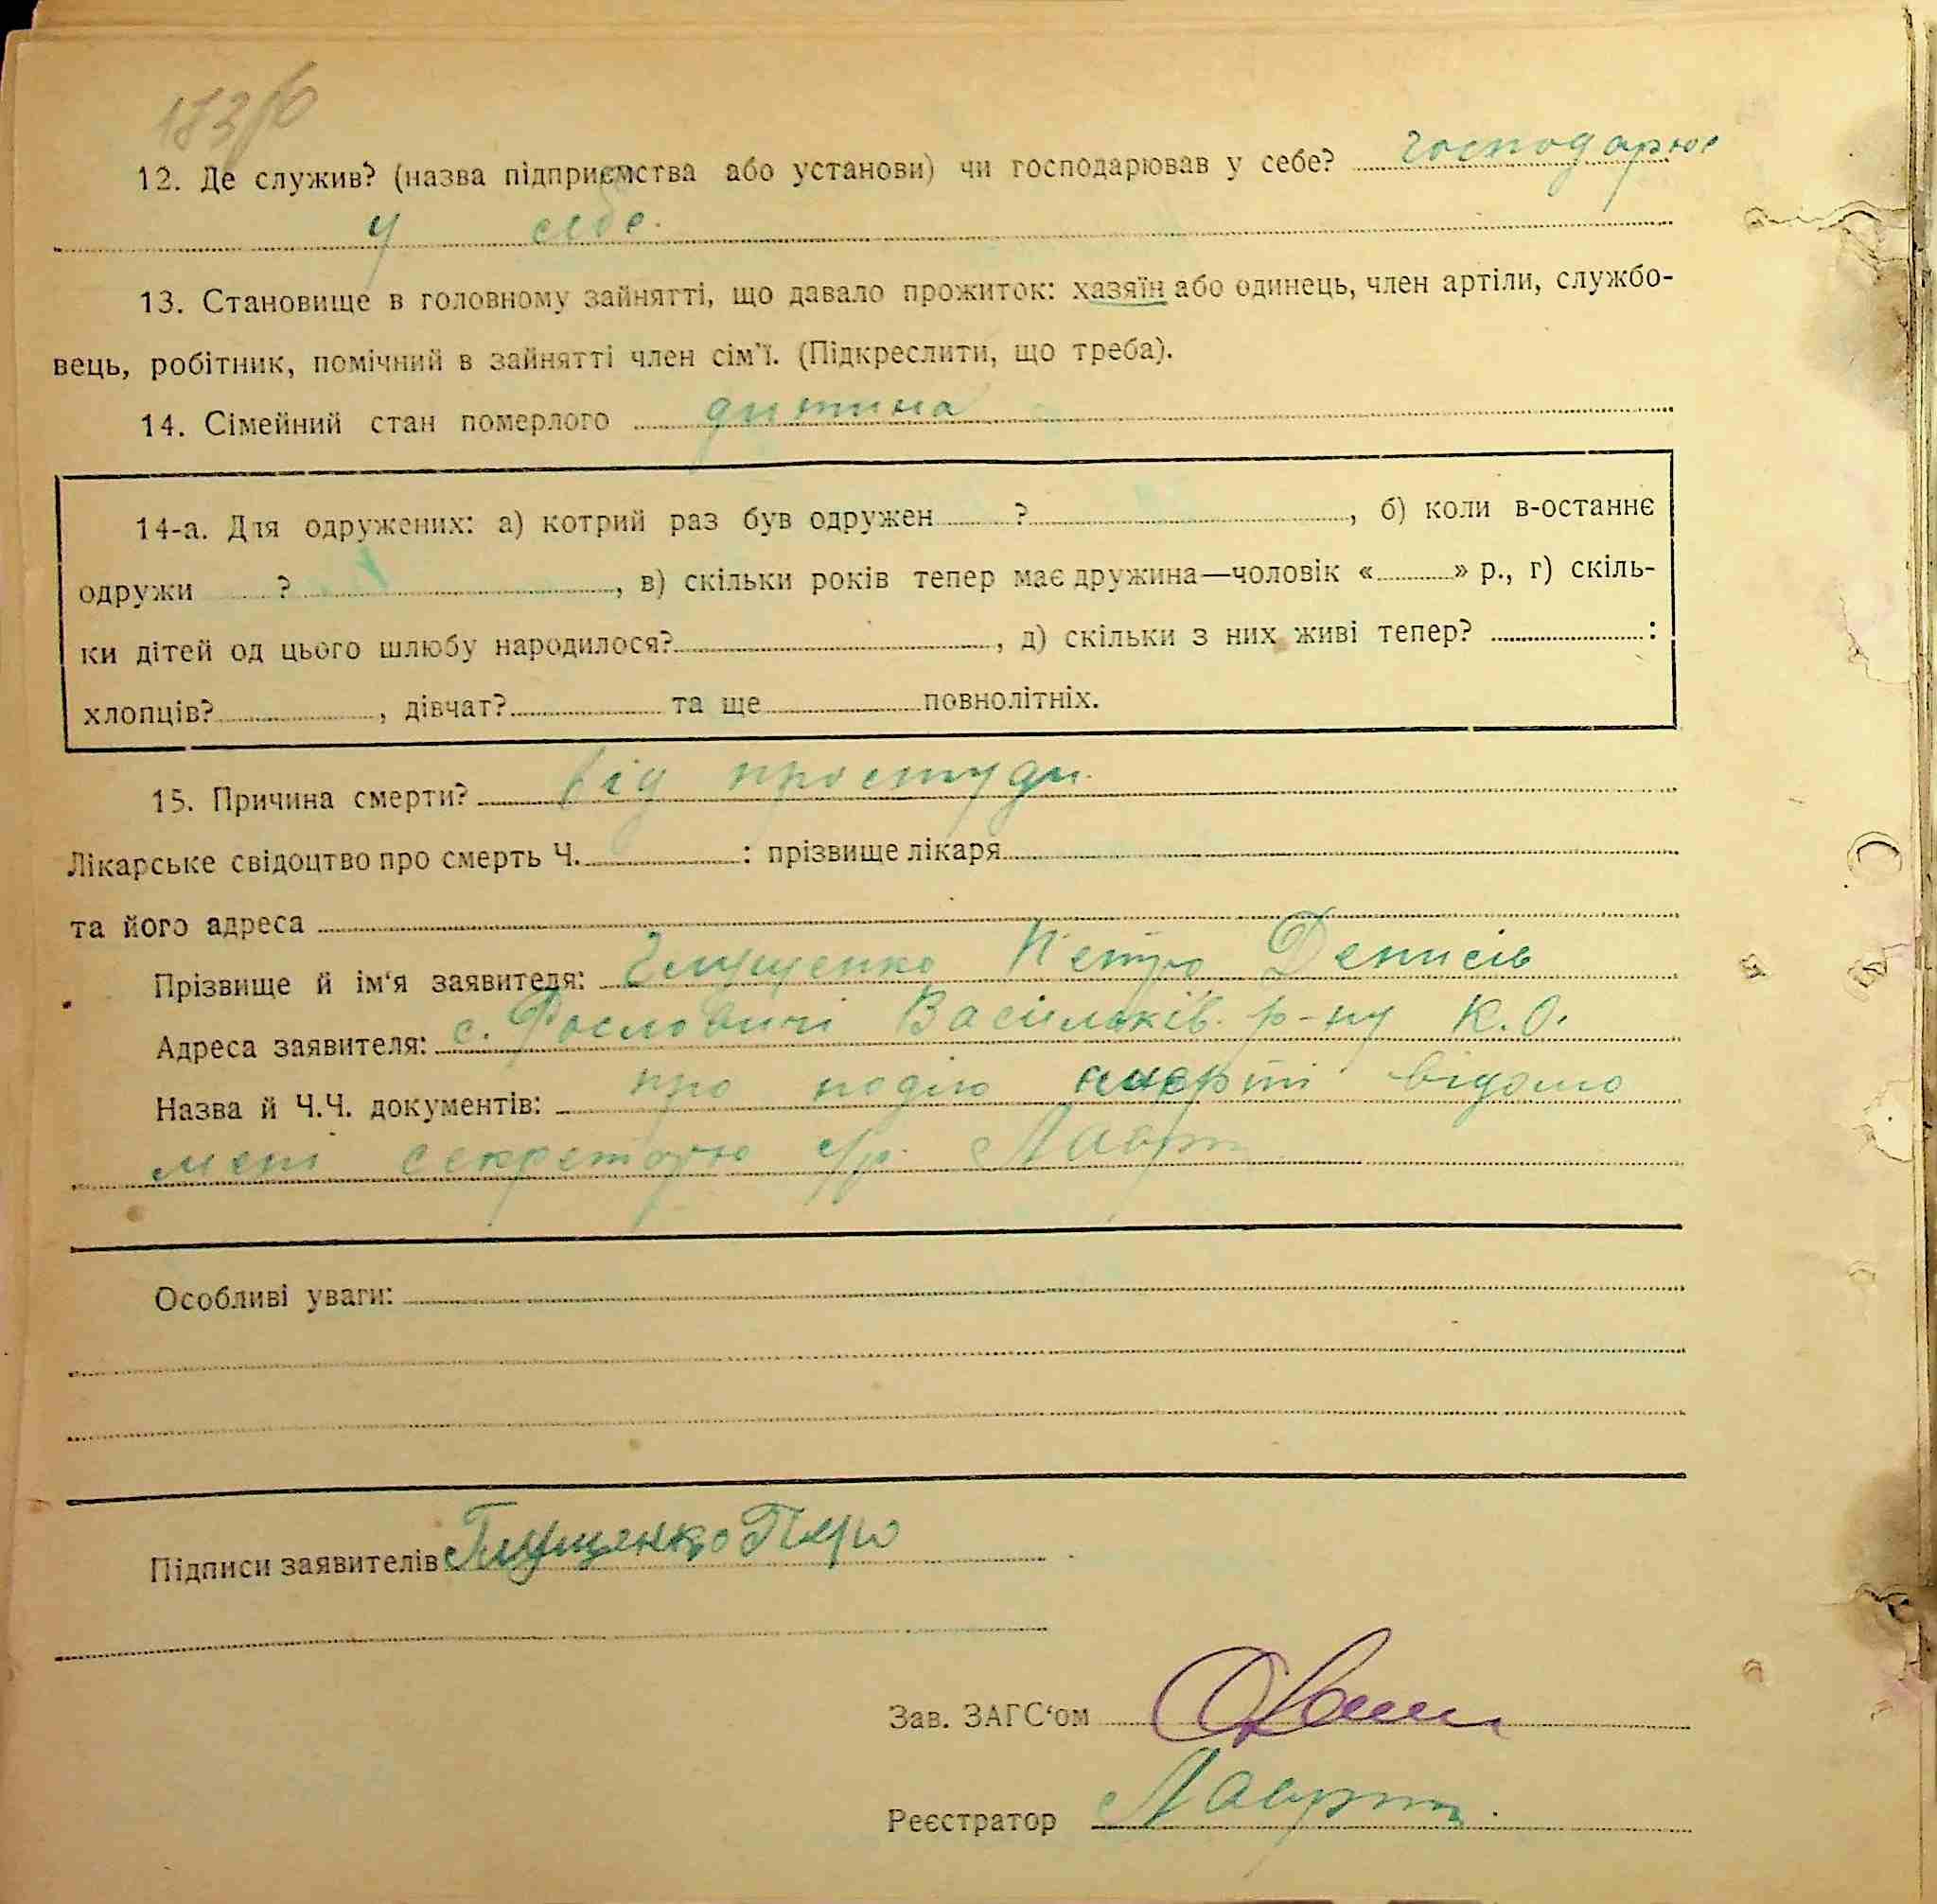 12. Де служив? (назва підприємства або установи) чи господарював у себе? господарює
у себе.
13. Становище в головному зайнятті, що давало прожиток: хазяїн або одинець, член артіли, службо-
вець, робітник, помічний в зайнятті член сім'ї. (Підкреслити, що треба).
14. Сімейний стан померлого дитина
14-а. Для одружених: а) котрий раз був одружен ? , б) коли в-останнє
одружи ? , в) скільки років тепер має дружина—чоловік « » р., г) скіль-
ки дітей од цього шлюбу народилося? , д) скільки з них живі тепер? :
хлопців? , дівчат? та ще повнолітніх.
15. Причина смерти? від простуди
Лікарське свідоцтво про смерть Ч. : прізвище лікаря
та його адреса
Прізвище й ім'я заявителя: Глущенко Петро Денисів
Адреса заявителя: с. Васильків. р-ну К.О.
Назва й Ч.Ч. документів: про подію смерті відомо
мені секретарю с/р.
Особливі уваги:
Підписи заявителів Глущенко Петро
Зав. ЗАГС'ом
Реєстратор